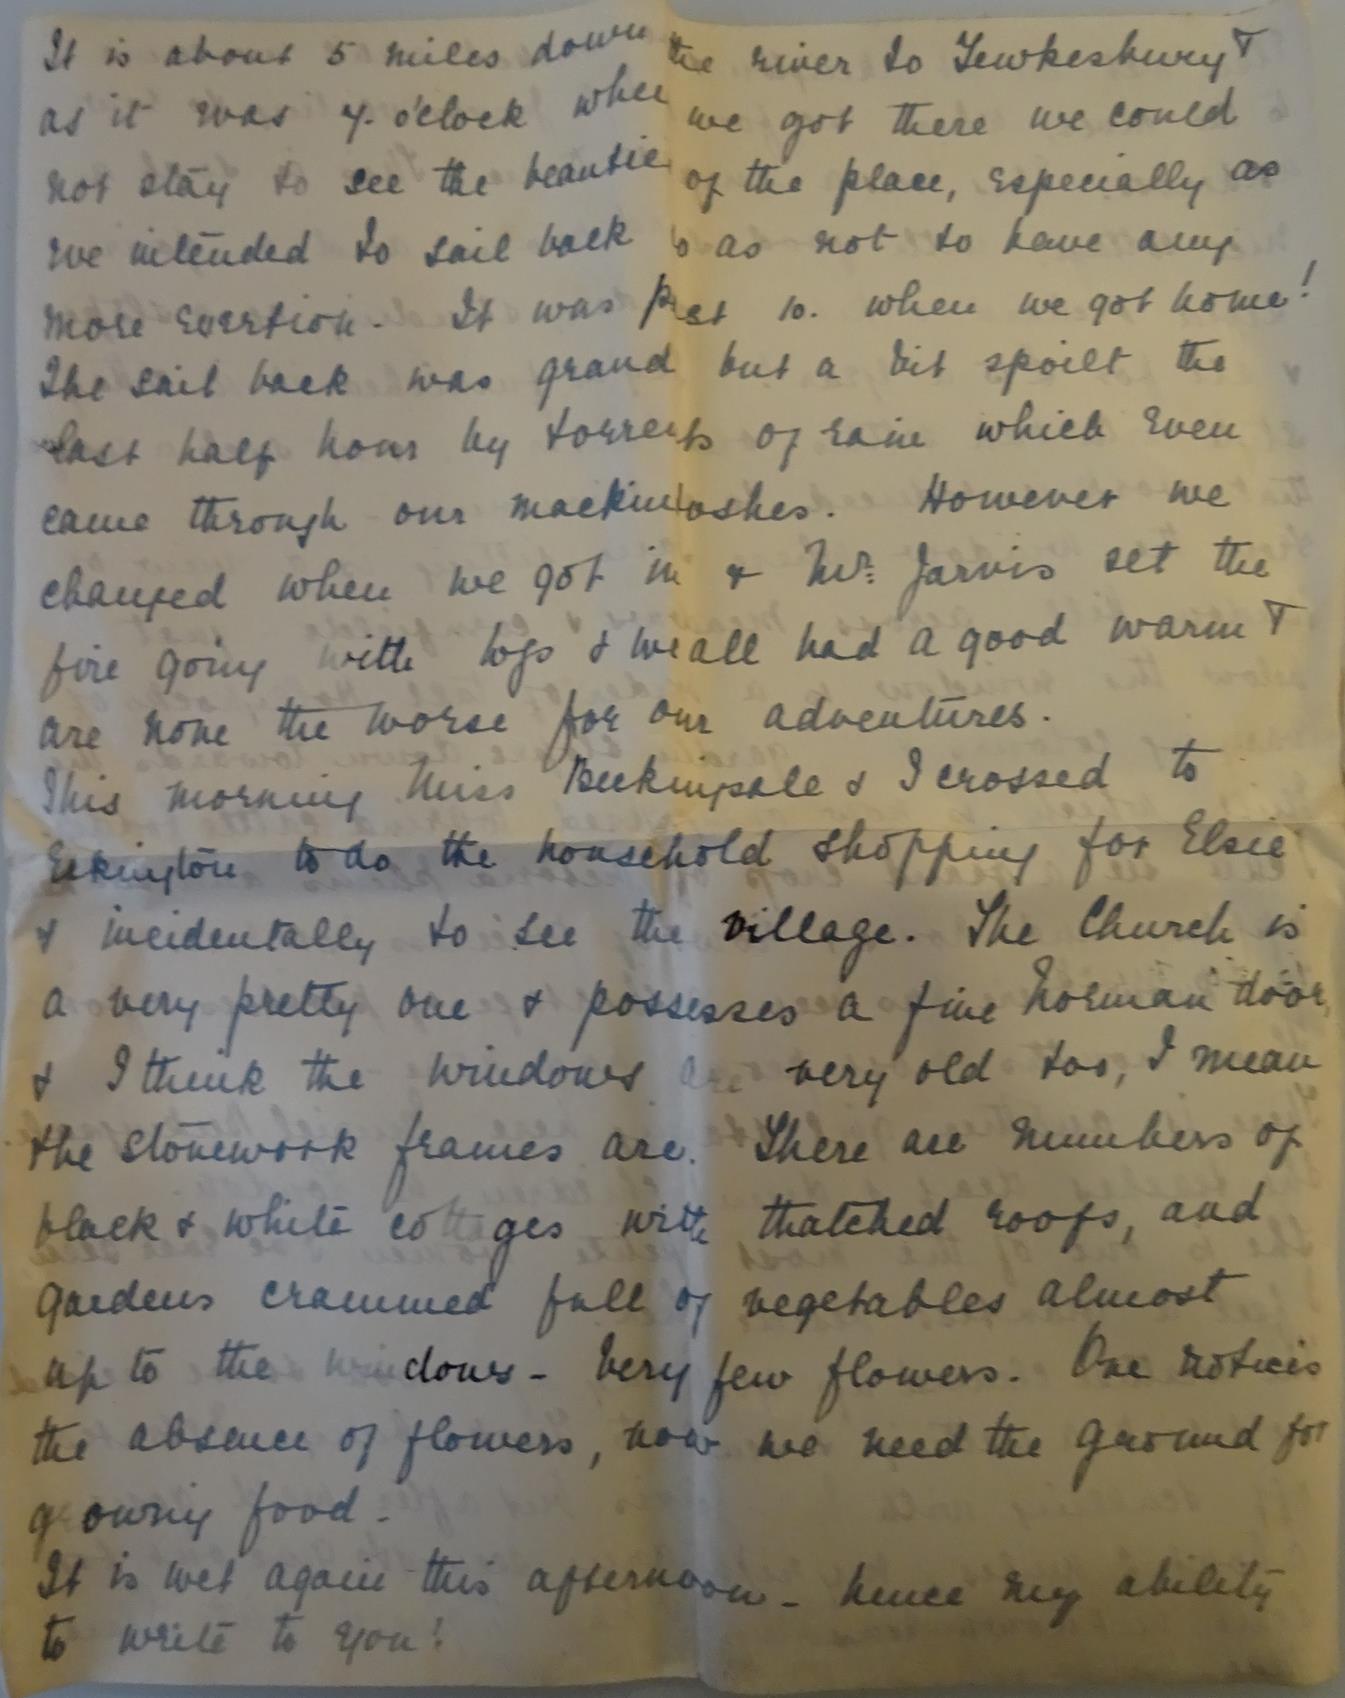 It is about 5 miles down the river to Tewkesbury &
as it was 7. o'clock when we got there we could
not stay to see the beauties of the place, especially as
we intended to sail back so as not to have any
more exertion. It was past 10. when we got home!
The sail back was grand but a bit spoilt the
last half hour by torrents of rain which even
came through our mackintoshes. However we
changed when we got in & Mr. Jarvis set the
fire going with logs & we all had a good warm &
are none the worse for our adventures.
This morning Miss Beckingsale & I crossed to
Eckington to do the household shopping for Elsie
& incidentally to see the village. The Church is
a very pretty one & possesses a fine Norman door,
& I think the windows are very old too, I mean
the stonework frames are. There are numbers of
black & white cottages with thatched roofs, and
gardens crammed full of vegetables almost
up to the windows - very few flowers. One notices
the absence of flowers, now we need the ground for
growing food.
It is wet again this afternoon - hence my ability
to write to you!